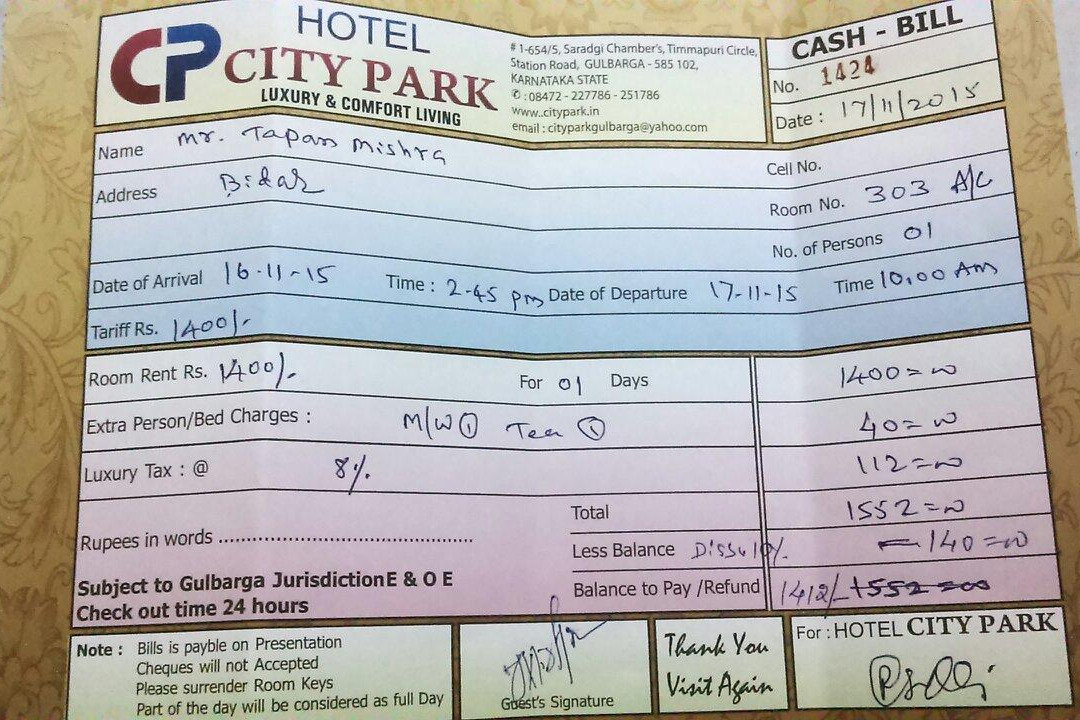 CP HOTEL CITY PARK
LUXURY & COMFORT LIVING
# 1-654/5, Saradgi Chamber's, Timmapuri Circle,
Station Road, GULBARGA - 585 102,
KARNATAKA STATE
✆ : 08472 - 227786 - 251786
www..citypark.in
email : cityparkgulbarga@yahoo.com
CASH - BILL
No. 1424
Date : 17/11/2015
Name Mr. Tapan Mishra
Cell No.
Address Bidar
Room No. 303 A/C
No. of Persons 01
Date of Arrival 16-11-15 Time : 2-45 pm Date of Departure 17-11-15 Time 10.00 Am
Tariff Rs. 1400/-
Room Rent Rs. 1400/- For 01 Days 1400=00
Extra Person/Bed Charges : M/W ① Tea ① 40=00
Luxury Tax : @ 8% 112=00
Total 1552=00
Rupees in words ..........................................
Less Balance 10%. 140=00
Balance to Pay /Refund 1412/- 1552=00
Subject to Gulbarga Jurisdiction E & O E
Check out time 24 hours
Note : Bills is payble on Presentation
Cheques will not Accepted
Please surrender Room Keys
Part of the day will be considered as full Day
Guest's Signature
Thank You
Visit Again
For : HOTEL CITY PARK